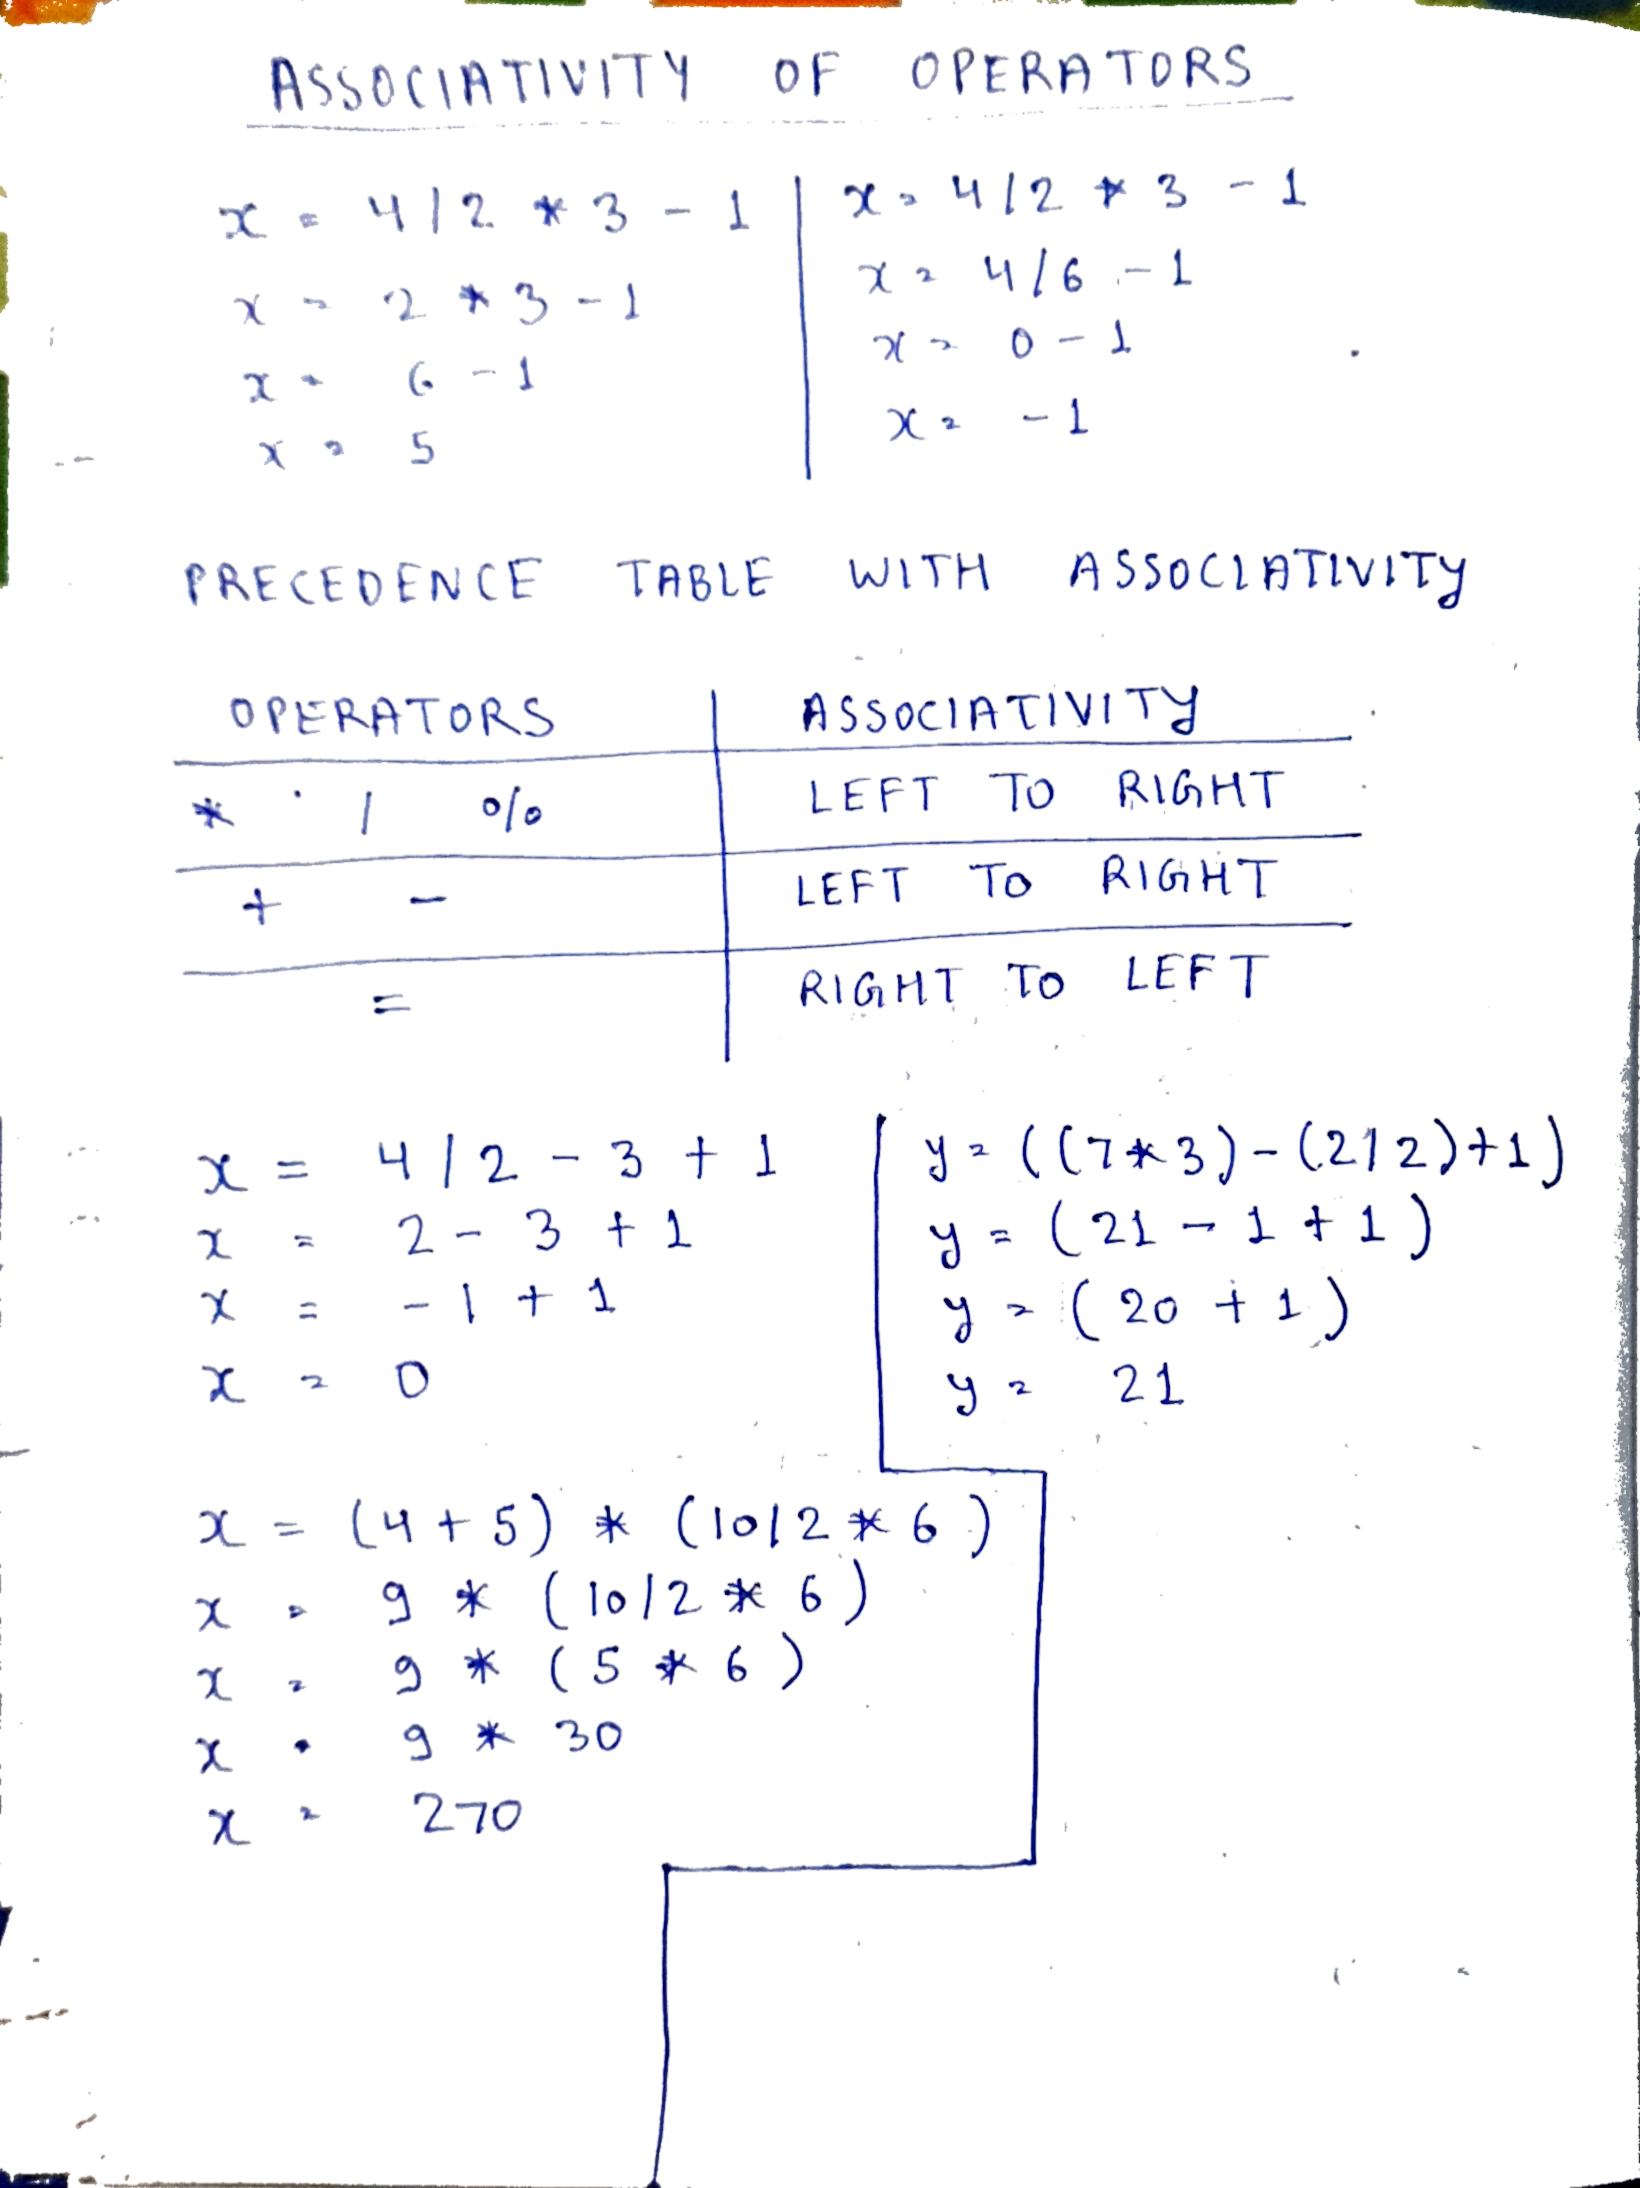 ASSOCIATIVITY OF OPERATORS
x = 4/2 * 3 - 1
x = 2 * 3 - 1
x = 6 - 1
x = 5
x = 4/2 * 3 - 1
x = 4/6 - 1
x = 0 - 1
x = -1
PRECEDENCE TABLE WITH ASSOCIATIVITY
OPERATORS ASSOCIATIVITY
* / % LEFT TO RIGHT
+ - LEFT TO RIGHT
= RIGHT TO LEFT
x = 4/2 - 3 + 1
x = 2 - 3 + 1
x = -1 + 1
x = 0
y = ((7*3)-(2/2)+1)
y = (21 - 1 + 1)
y = (20 + 1)
y = 21
x = (4+5) * (10/2 * 6)
x = 9 * (10/2 * 6)
x = 9 * (5 * 6)
x = 9 * 30
x = 270